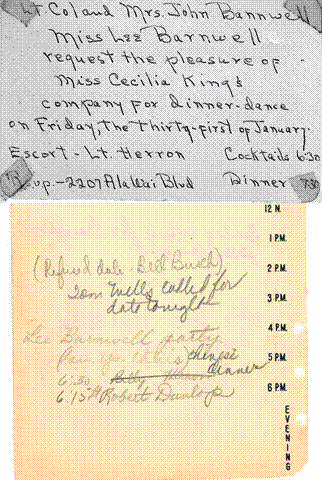 Lt. Col and Mrs. John Bannwell
Miss Lee Barnwell
request the pleasure of
Miss Cecilia King's
company for dinner-dance
on Friday, the thirty-first of January.
Escort - Lt. Herron Cocktails 6:30
R.s.v.p. - 2207 AlaWai Blvd Dinner 7:30
12 N.
1 P.M.
(Refused date - Bill Busch)
2 P.M.
Tom Wells called for
date tonight
3 P.M.
Lee Barnwell party
4 P.M.
Chinese
dinner
5 P.M.
6:30
6:15 Robert Dunlop
6 P.M.
EVENING